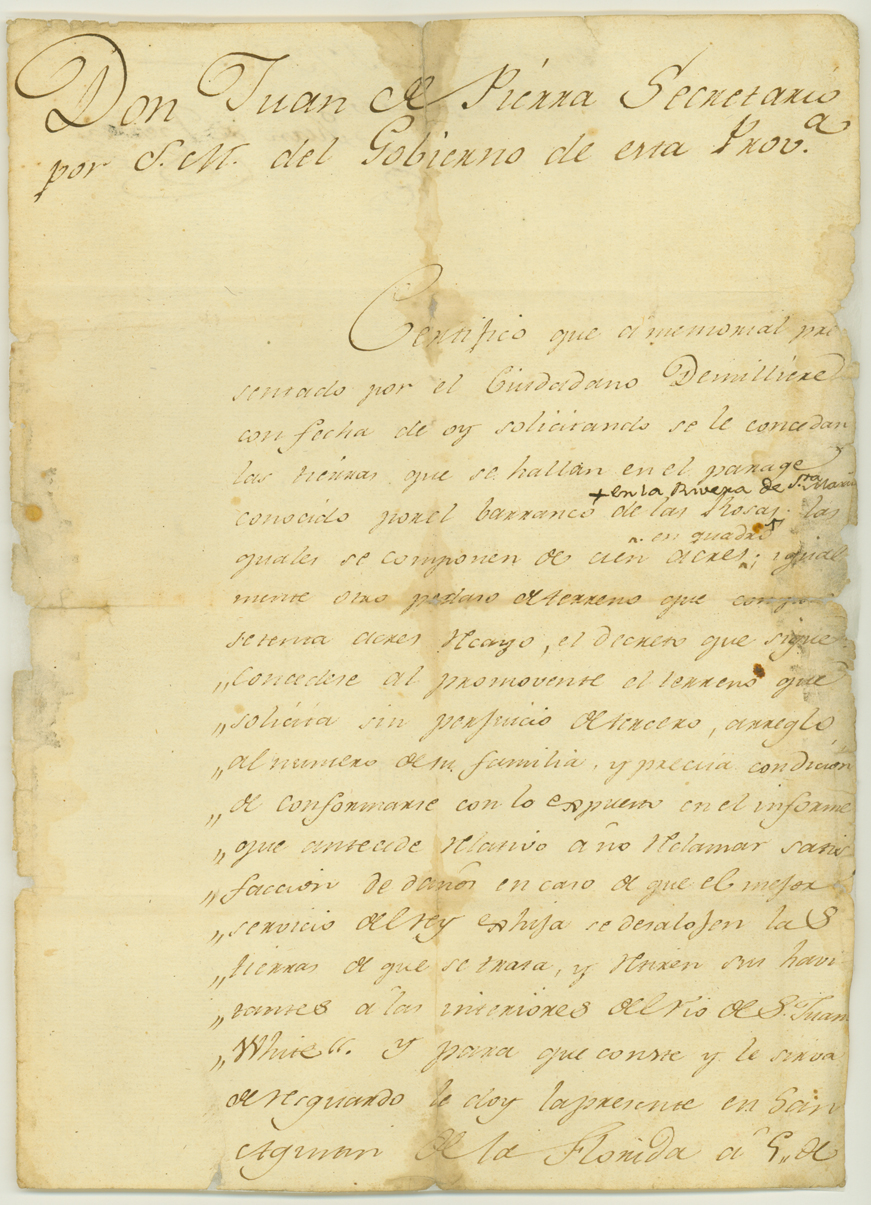 Don Juan de Pierra Secretario
por S. M. del Gobierno de esta Prov.a
Certifico que a memorial pre
sentado por el Ciudadano Demilliere
con fecha de oy solicitando se le concedan
las tierras que se hallan en el parage
+ en la Rivera de Sta Maria
conocido por el barranco de las Rosas las
en quadro
quales se componen de cien acres; igual
mente otro pedaso de terreno que
setenta acres recayo, el decreto que sigue
„Concedese al promovente el terreno que
„solicita sin perjuicio de tercero, arreglo
„al numero de su familia, y precisa condicion
„de conformarse con lo expuesto en el informe
„que antecede relativo a no reclamar satis
„faccion de daños en caso de que el mejor
„servicio del rey exhija se desalojen las
„tierras de que se trata, y retiren sus havi
„tantes a las interiores del rio de Sn Juan
„White“. y para que conste y le sirva
de resguardo le doy la presente en San
Agustin de la Florida a 5„ de